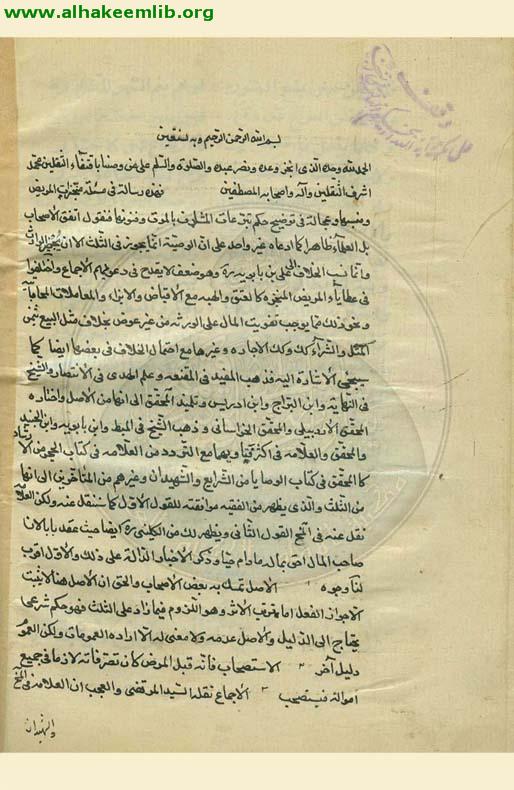 www.alhakeemlib.org
بسم الله الرحمن الرحيم وبه نستعين
الحمد لله وحده الذي انجز وعده ونصر عبده والصلوة والسلم على من وصانا باقتفاء الثقلين محمد
اشرف الثقلين وآله واصحابه المصطفين فهذه رسالة في مسئلة منجزات المريض
وعجالة في توضيح حكم تبرعات المشرف بالموت وفنونها فنقول اتفق الاصحاب
بل العلماء ظاهرا كما ادعاه غير واحد على ان الوصية انما تجوز في الثلث الا ان يجيز الوارث
وانما نسب الخلاف الى علي بن بابويه ره وهو ضعف لا يقدح في دعويهم الاجماع واختلفوا
في عطايا المريض المنجزه كالعتق والهبه مع الاقباض والابراء والمعاملات المحاباتية
ونحو ذلك مما يوجب تفويت المال على الورثه من غير عوض بخلاف مثل البيع بثمن
المثل والشراء كك وكك الاجاره وغيرها مع احتمال الخلاف في بعضها ايضا كما
سيجئ الاشارة اليه فذهب المفيد في المقنعه وعلم الهدى في الانتصار والشيخ
في النهاية وابن البراج وابن ادريس وتلميذ المحقق الى انها من الاصل واختاره
المحقق الاردبيلي والمحقق الخراساني وذهب الشيخ في المبسط وابن بابويه وابن الجنيد
والمحقق والعلامه في اكثر كتبهما مع التردد من العلامه في كتاب الحجر من الارشاد
كا المحقق في كتاب الوصايا من الشرايع والشهيدان وغيرهم من المتاخرين الى انها
من الثلث والذي يظهر من الفقيه موافقته للقول الاول كما سننقل عنه ولكن العلامة
نقل عنه في المخ القول الثاني ويظهر ذلك من الكليني ره ايضا حيث عقد بابا لان
صاحب المال احق بماله مادام حيا وذكر الاخبار الدالة على ذلك والاول اقرب
لنا وجوه الاصل تمسك به بعض الاصحاب والحق ان الاصل هنا لا يثبت
الا جواز الفعل اما ترتب الاثر وهو اللزوم فيما زاد على الثلث فهو حكم شرعي
يحتاج الى الدليل والاصل عدمه ولا معنى له الا اراده العمومات ولكن العموم
دليل آخر الاستصحاب فانه قبل المرض كان تصرفاته لازما في جميع
امواله فيستصحب الاجماع نقله السيد المرتضى والعجب ان العلامه في المخ
والشهيدان